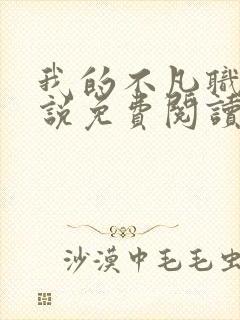 我的不凡職
說免費閱讀
沙漠中毛毛虫